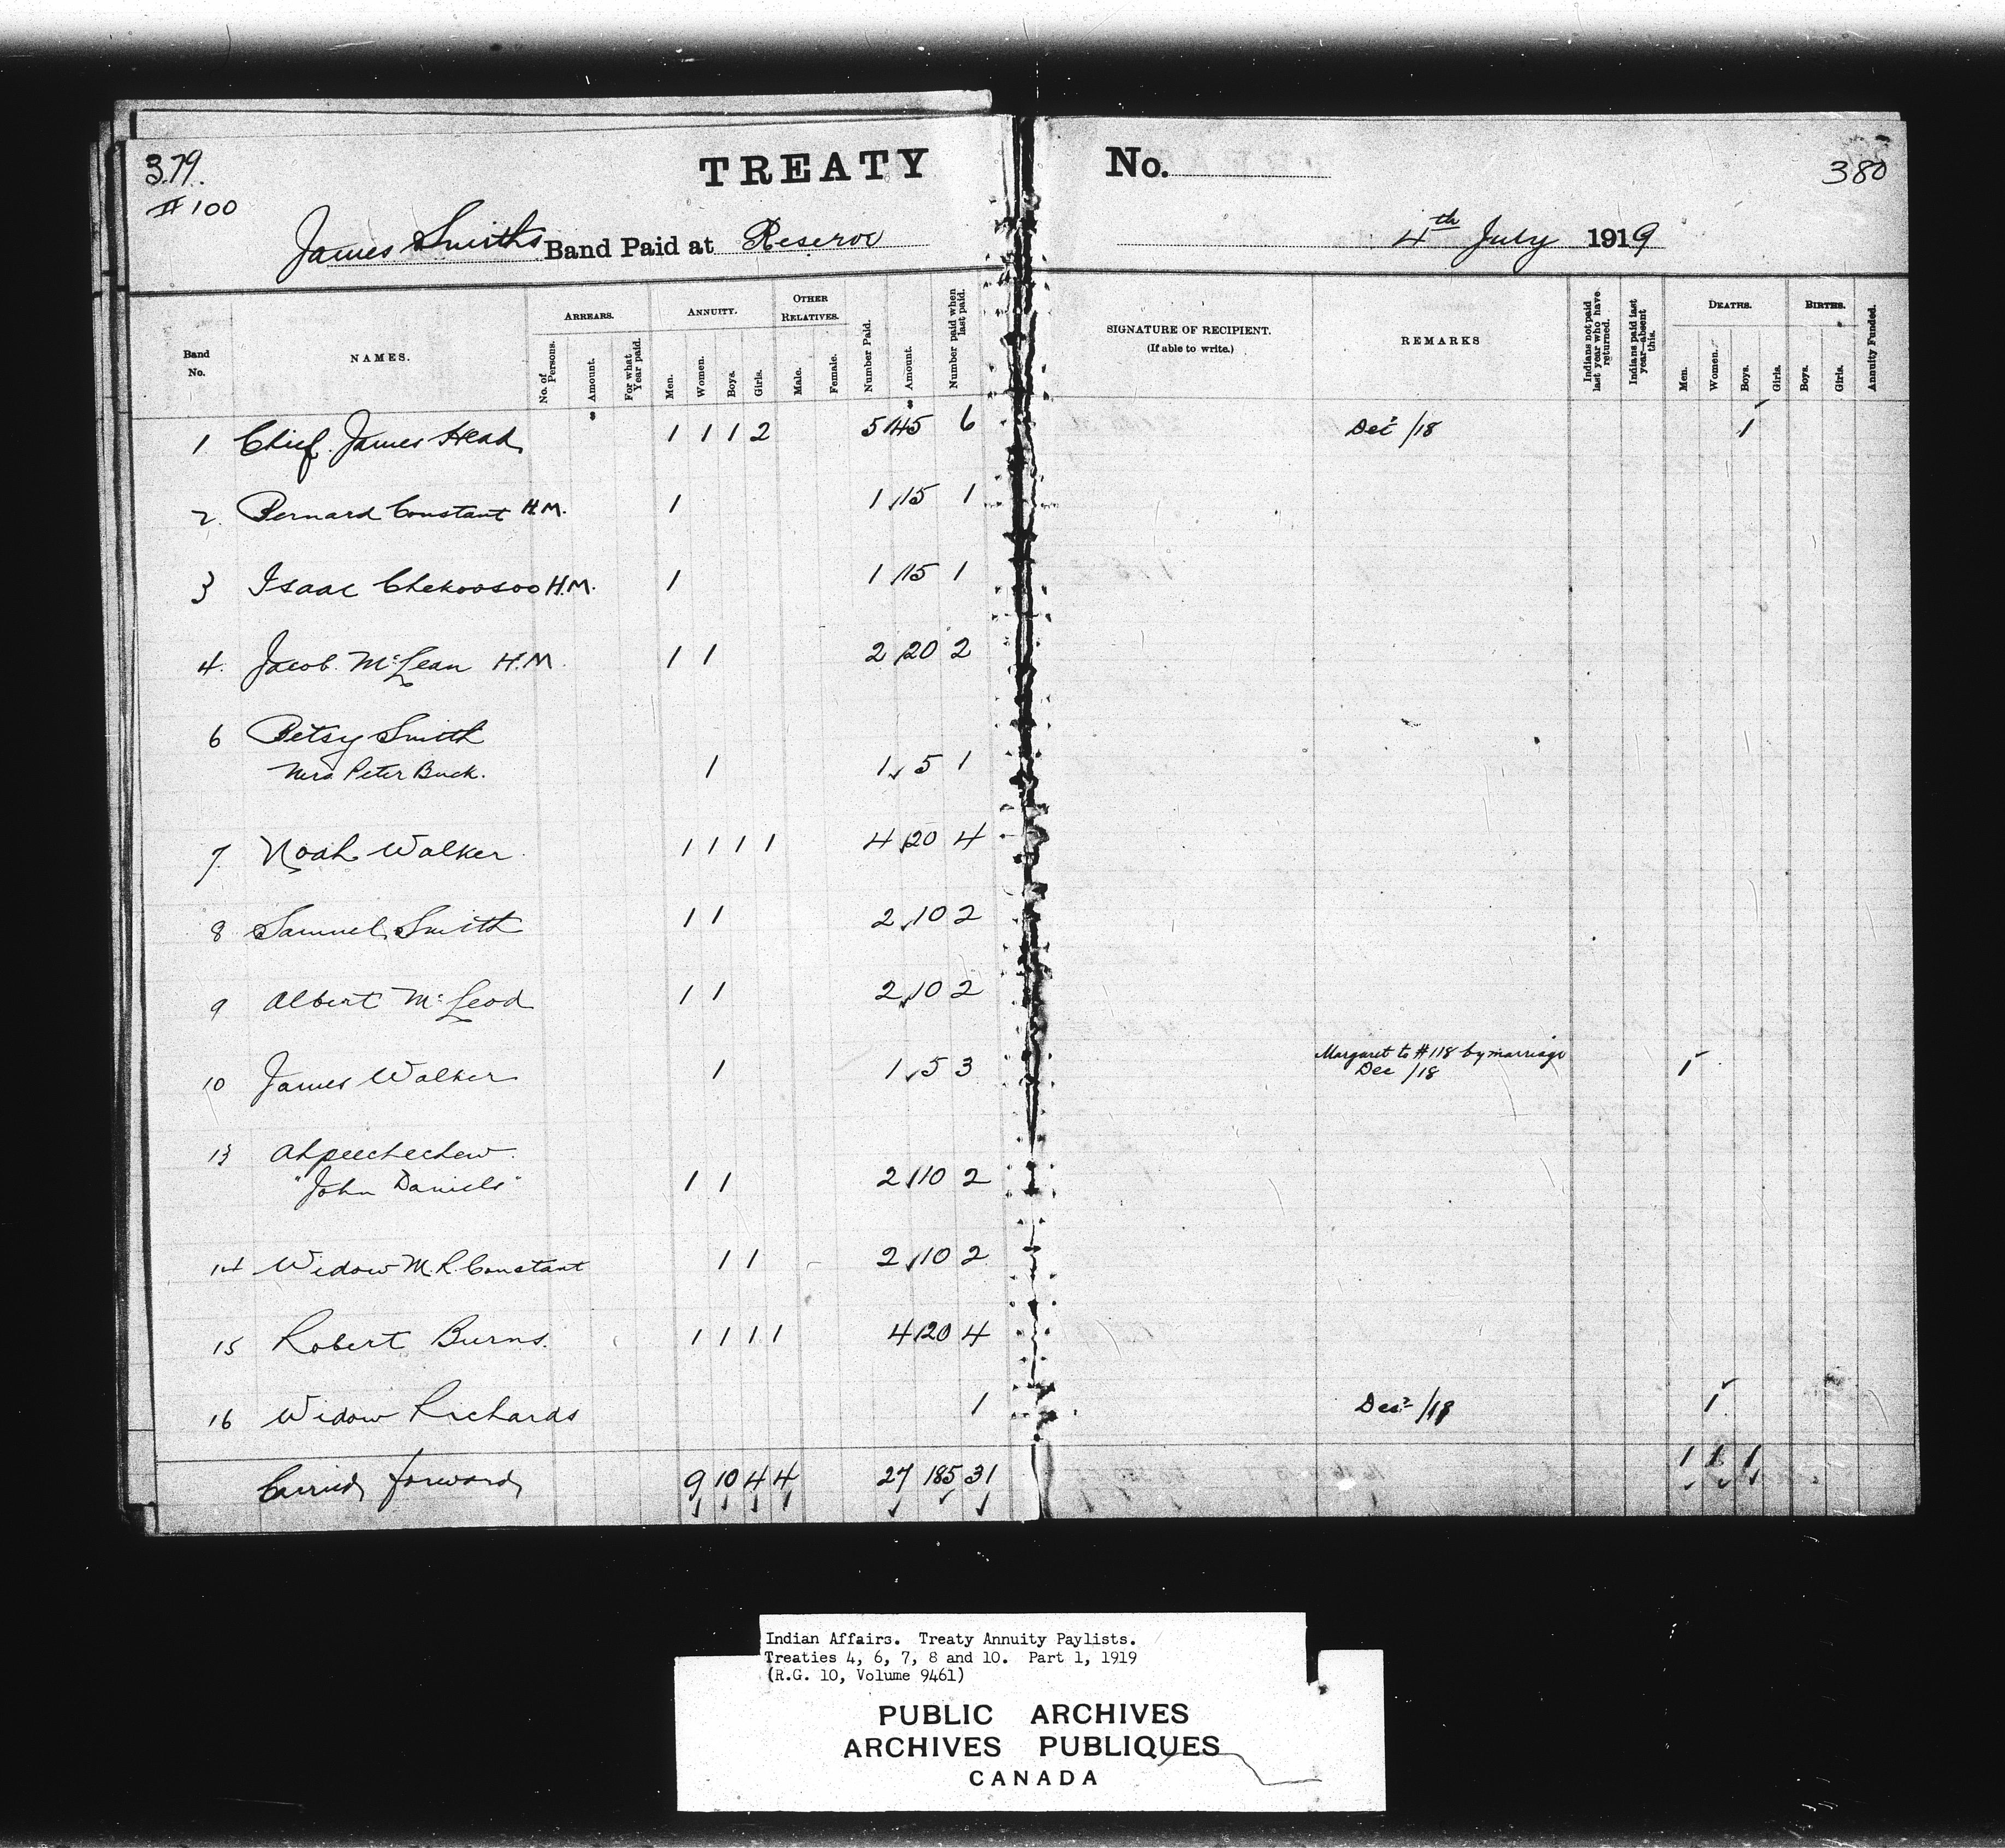 379.
# 100
TREATY No. 380
James Smiths Band Paid at Reserve 4th July 1919
Band No. NAMES. ARREARS. No. of Persons. Amount. For what Year paid. ANNUITY. Men. Women. Boys. Girls. OTHER RELATIVES. Male. Female. Number Paid. Amount. Number paid when last paid. SIGNATURE OF RECIPIENT. (If able to write.) REMARKS Indians not paid last year who have returned. Indians paid last year—absent this. DEATHS. Men. Women. Boys. Girls. BIRTHS. Boys. Girls. Annuity Funded.
1 Chief James Head 1 1 1 2 5 45 6 Dec /18 1
2 Bernard Constant H.M. 1 1 15 1
3 Isaac Chekoosoo H.M. 1 1 15 1
4 Jacob McLean H.M. 1 1 2 20 2
6 Betsy Smith
Mrs Peter Buck. 1 1 5 1
7 Noah Walker 1 1 1 1 4 20 4
8 Samuel Smith 1 1 2 10 2
9 Albert McLeod 1 1 2 10 2
Margaret to #118 by marriage
10 James Walker 1 1 5 3 Dec /18 1
13 Ahpeechechew
"John Daniels" 1 1 2 10 2
14 Widow M.R. Constant 1 1 2 10 2
15 Robert Burns. 1 1 1 1 4 20 4
16 Widow Richards 1 Dec /18 1
Carried forward 9 10 4 4 27 185 31 1 1 1
Indian Affairs. Treaty Annuity Paylists.
Treaties 4, 6, 7, 8 and 10. Part 1, 1919
(R.G. 10, Volume 9461)
PUBLIC ARCHIVES
ARCHIVES PUBLIQUES
CANADA